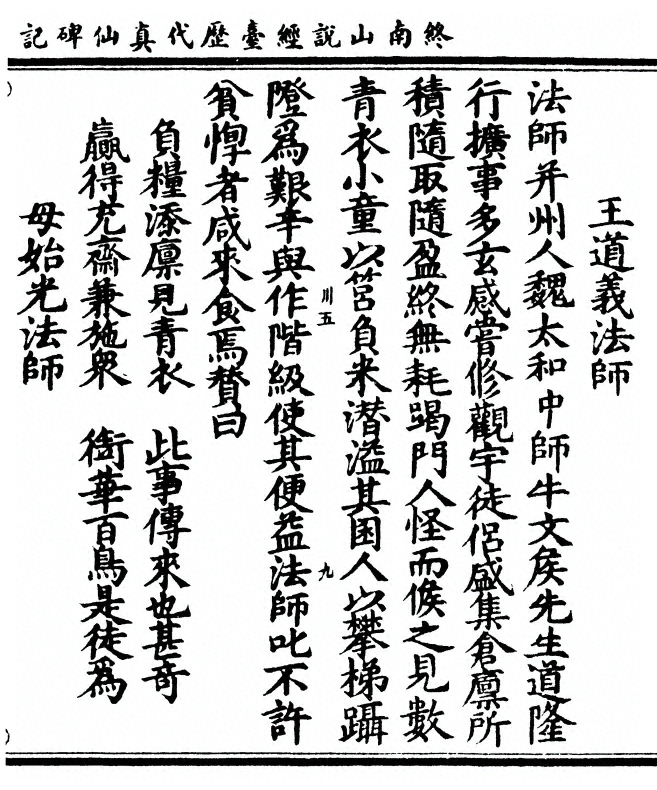 終南山說經臺歷代真仙碑記
王道義法師
法師并州人魏太和中師牛文矦先生道隆
行擴事多玄感嘗修觀宇徒侶盛集倉廪所
積隨取隨盈終無耗竭門人怪而候之見數
青衣小童以筥負米潛溢其囷人以攀梯躡
隥爲艱辛與作階級使其便益法師叱不許
川五
九
貧惸者咸來食焉賛曰
負糧添廪見青衣 此事傳來也甚奇
贏得充齋兼施衆 銜華百鳥是徒爲
母始光法師